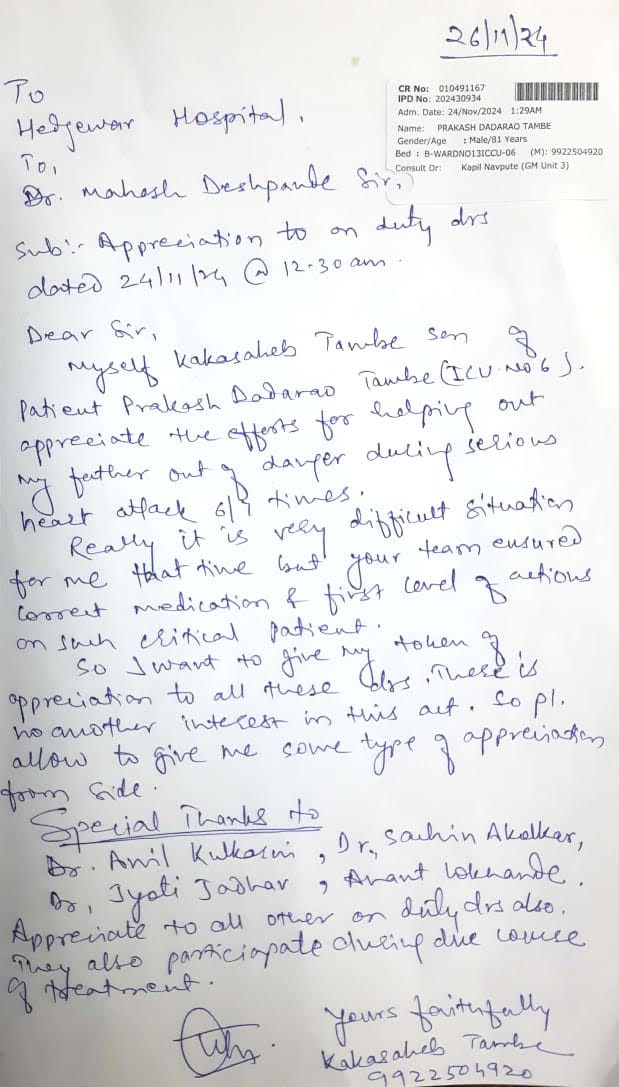 26/11/24
To
Hedgewar Hospital.
CR No: 010491167
IPD No: 202430934
Adm. Date: 24/Nov/2024 1:29AM
Name: PRAKASH DADARAO TAMBE
Gender/Age : Male/81 Years
Bed : B-WARDNO13ICCU-06 (M): 9922504920
Consult Dr: Kapil Navpute (GM Unit 3)
To,
Dr. Mahesh Deshpande Sir,
Sub:- Appreciation to on duty drs
dated 24/11/24 @ 12.30 am.
Dear Sir,
Myself Kakasaheb Tambe son of
Patient Prakash Dadarao Tambe (ICU. No 6).
appreciate the efforts for helping out
my father out of danger during serious
heart attack 6/7 times.
Really it is very difficult situation
for me that time but your team ensured
correct medication & first level of actions
on such critical patient.
So I want to give my token of
appreciation to all these drs. These is
no another interest in this act. So pl.
allow to give me some type of appreciation
from side.
Special Thanks to
Dr. Anil Kulkarni, Dr. Sachin Akolkar,
Dr, Jyoti Jadhav, Anant Lokhande.
Appreciate to all other on duty drs also.
They also particiapate during due course
of treatment.
Yours faithfully
Kakasaheb Tambe
9922504920